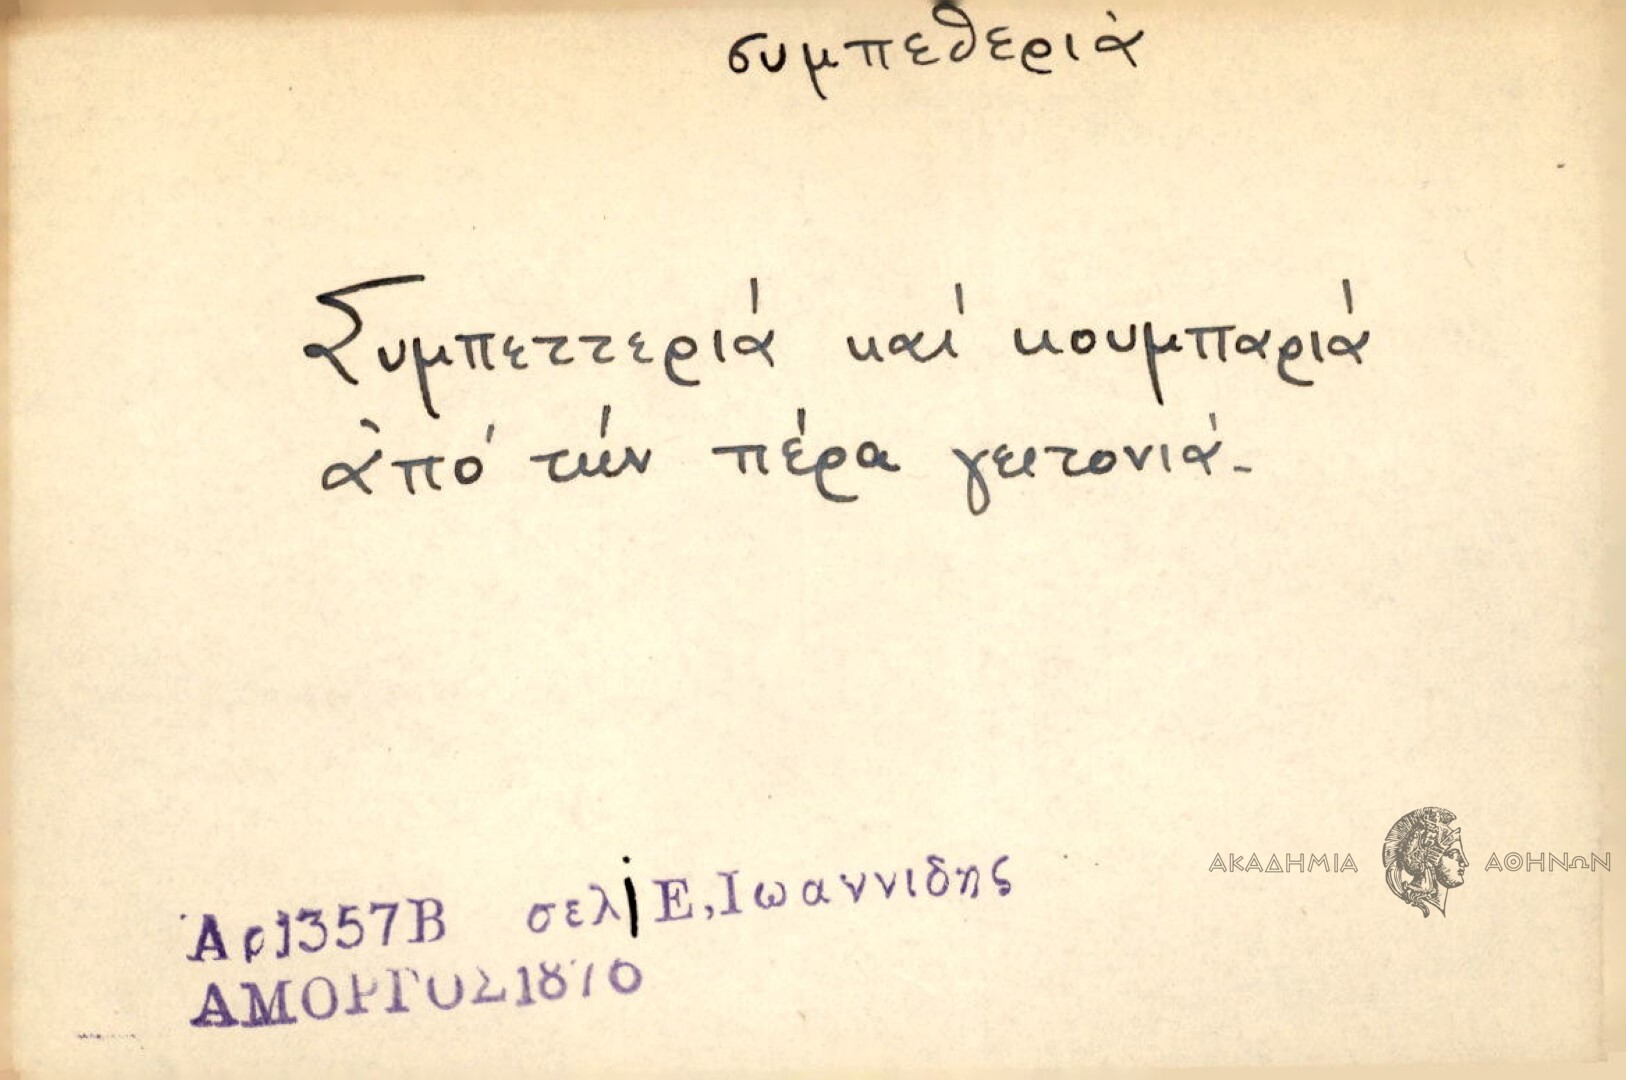 συμπεθεριὰ
Συμπεττεριά καί κουμπαριά
ἀπό τήν πέρα γειτονιά.
Ἀρ1357Β σελ1 Ε,Ιωαννιδης
ΑΜΟΡΓΟΣ1870
ΑΚΑΔΗΜΙΑ ΑΘΗΝΩΝ